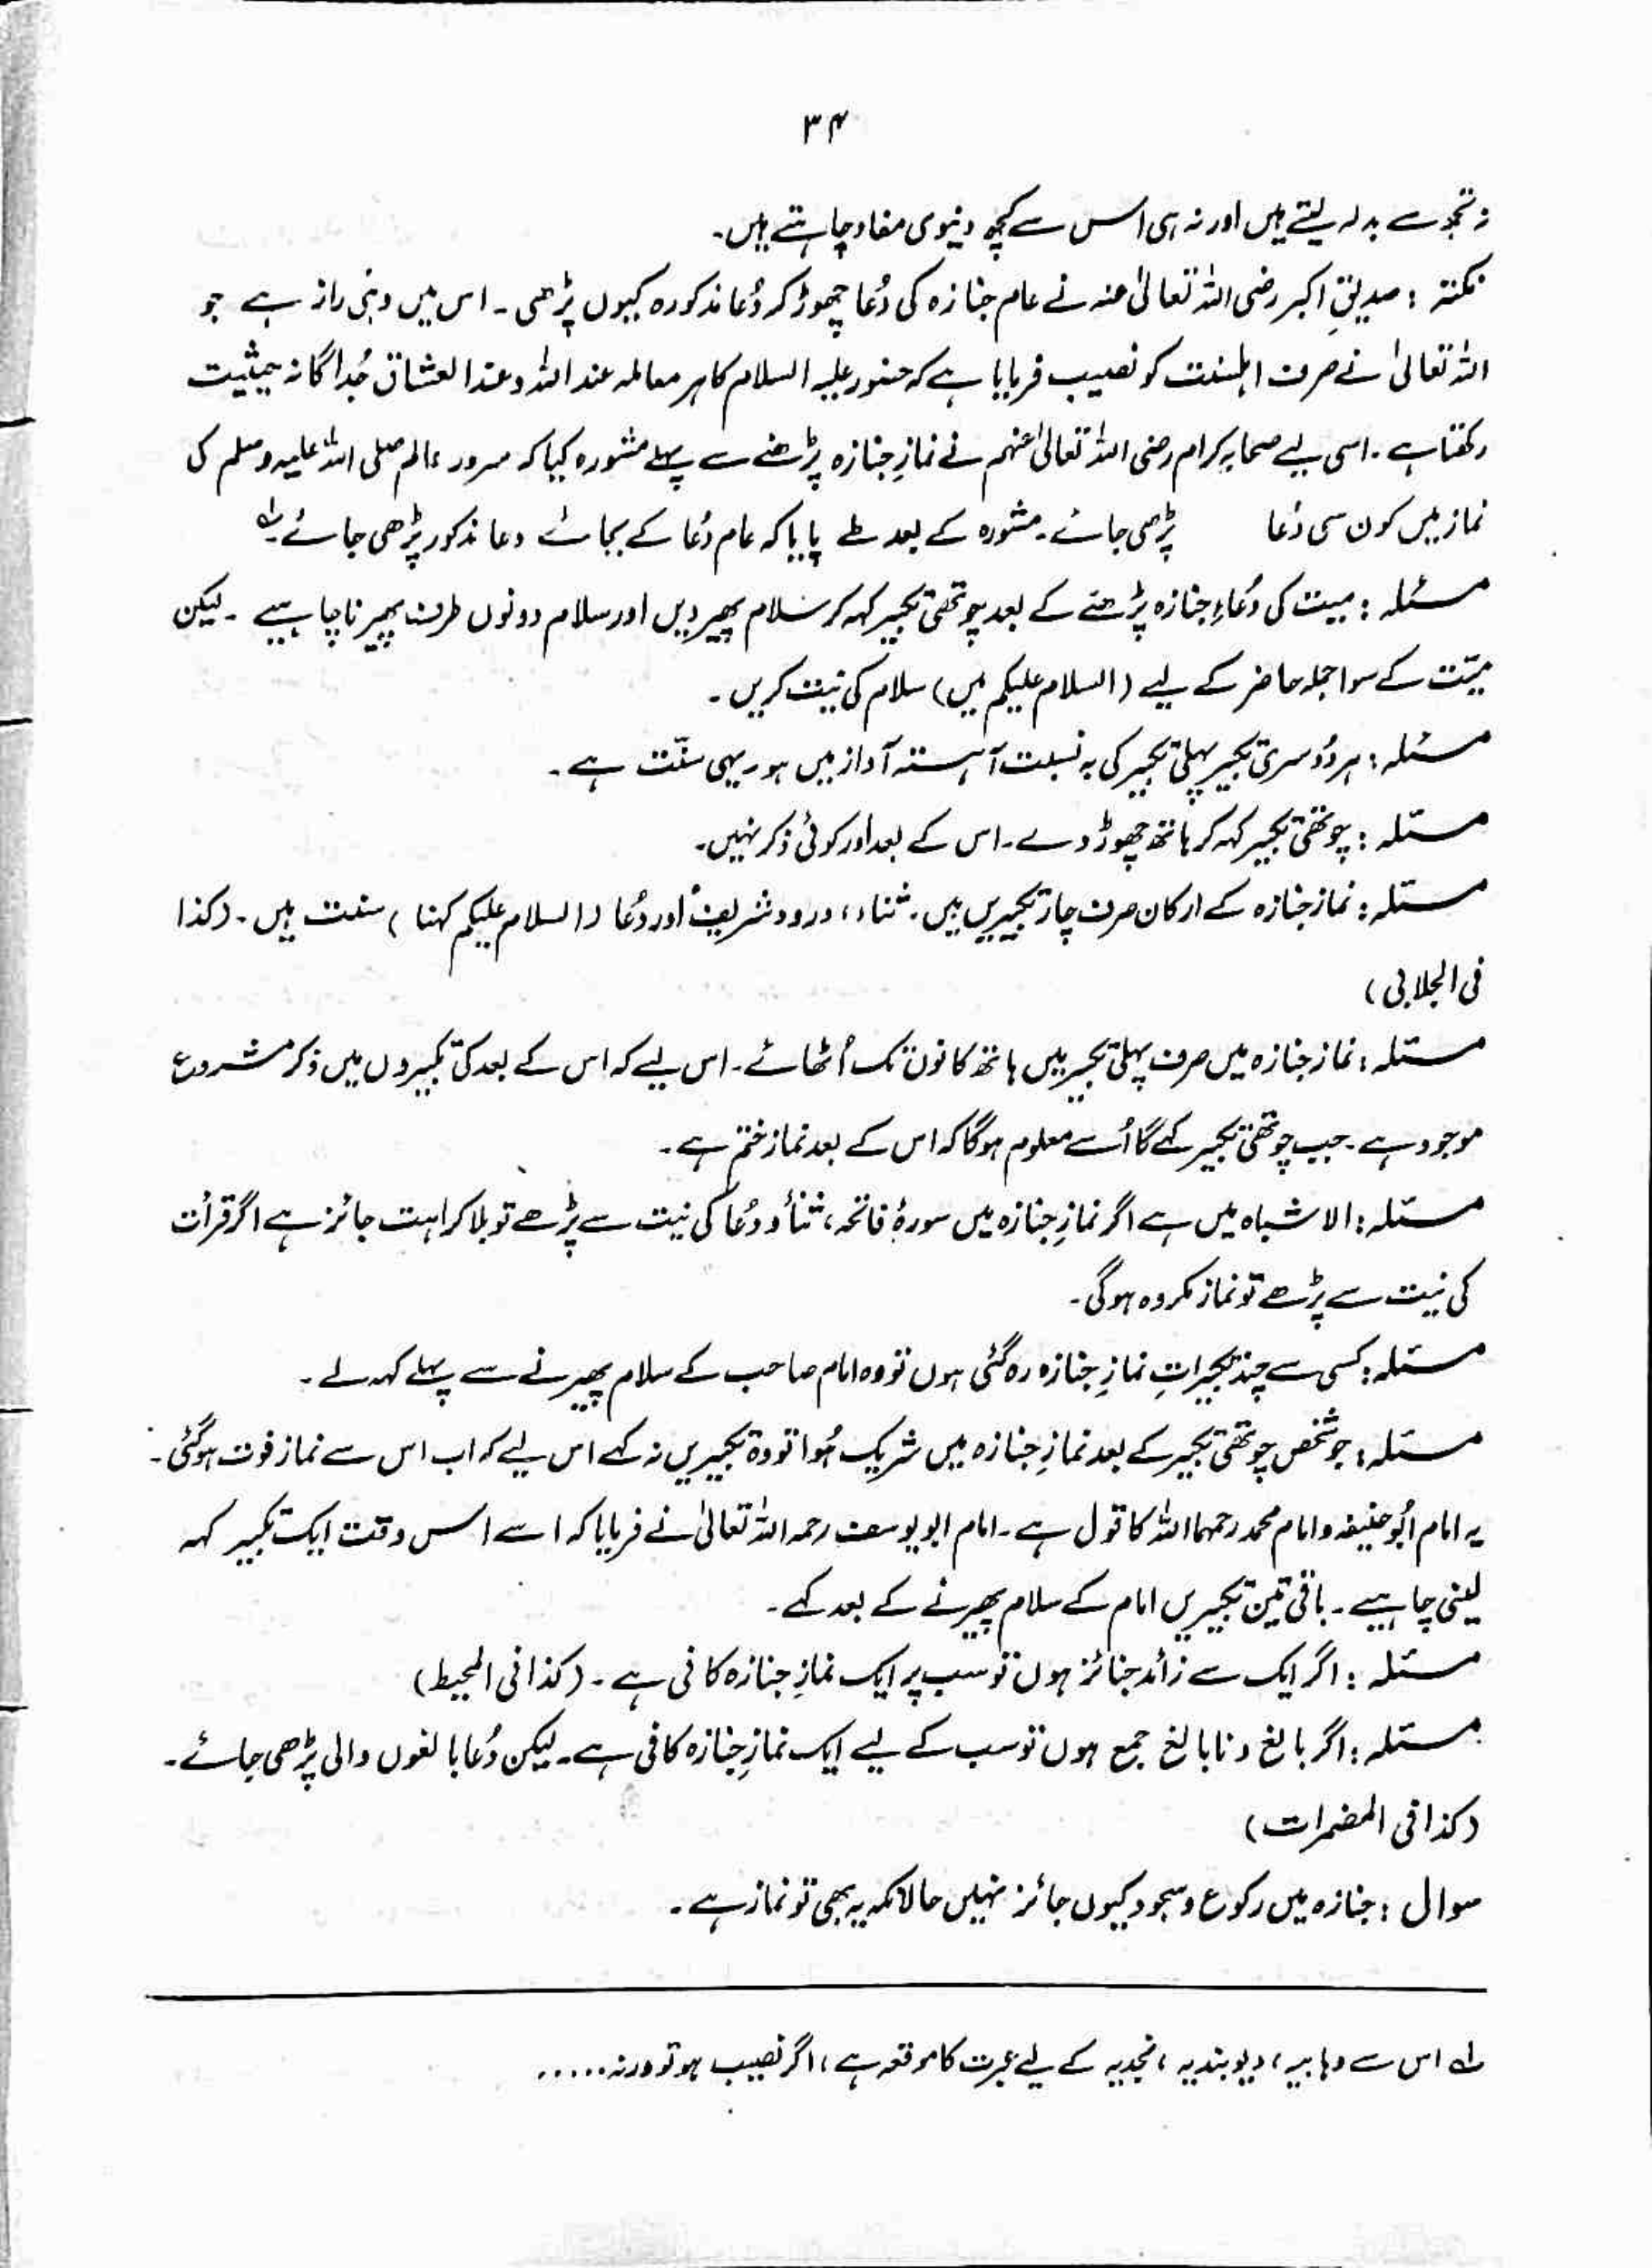 ۳۴
نہ تجھ سے بدلہ لیتے ہیں اور نہ ہی اس سے کچھ دنیوی مفاد چاہتے ہیں۔
نکتہ : صدیقِ اکبر رضی اللہ تعالیٰ عنہ نے عام جنازہ کی دُعا چھوڑ کر دُعا مذکورہ کیوں پڑھی ۔ اس میں وہی راز ہے جو
اللہ تعالیٰ نے صرف اہلسنت کو نصیب فرمایا ہے کہ حضور علیہ السلام کا ہر معاملہ عند اللہ و عند العشاق جُداگانہ حیثیت
رکھتا ہے ۔ اسی لیے صحابہ کرام رضی اللہ تعالیٰ عنہم نے نمازِ جنازہ پڑھنے سے پہلے مشورہ کیا کہ سرور عالم صلی اللہ علیہ وسلم کی
نماز میں کون سی دُعا پڑھی جائے ۔ مشورہ کے بعد طے پایا کہ عام دُعا کے بجائے دعا مذکور پڑھی جائے لہ
مسئلہ : میت کی دُعاءِ جنازہ پڑھنے کے بعد چوتھی تکبیر کہہ کر سلام پھیر دیں اور سلام دونوں طرف پھیرنا چاہیے ۔ لیکن
میّت کے سوا جملہ حاضر کے لیے (السلام علیکم میں) سلام کی نیت کریں ۔
مسئلہ : ہر دُوسری تکبیر پہلی تکبیر کی بہ نسبت آہستہ آواز میں ہو ۔ یہی سنّت ہے ۔
مسئلہ : چوتھی تکبیر کہہ کر ہاتھ چھوڑ دے ۔ اس کے بعد اور کوئی ذکر نہیں ۔
مسئلہ : نماز جنازہ کے ارکان صرف چار تکبیریں ہیں ۔ ثناء ، درود شریف اور دُعا (السلام علیکم کہنا ) سنت ہیں ۔ (کذا
فی الجلابی )
مسئلہ : نماز جنازہ میں صرف پہلی تکبیر میں ہاتھ کانوں تک اُٹھائے ۔ اس لیے کہ اس کے بعد کی تکبیروں میں ذکر مشروع
موجود ہے ۔ جب چوتھی تکبیر کہے گا اُسے معلوم ہوگا کہ اس کے بعد نماز ختم ہے ۔
مسئلہ : الاشباہ میں ہے اگر نمازِ جنازہ میں سورۂ فاتحہ ، ثنأ و دُعا کی نیت سے پڑھے تو بلا کراہت جائز ہے اگر قرأت
کی نیت سے پڑھے تو نماز مکروہ ہوگی ۔
مسئلہ : کسی سے چند تکبیراتِ نمازِ جنازہ رہ گئی ہوں تو وہ امام صاحب کے سلام پھیرنے سے پہلے کہہ لے ۔
مسئلہ : جو شخص چوتھی تکبیر کے بعد نمازِ جنازہ میں شریک ہُوا تو وہ تکبیریں نہ کہے اس لیے کہ اب اس سے نماز فوت ہوگئی ۔
یہ امام اُبو حنیفہ و امام محمد رحمہما اللہ کا قول ہے ۔ امام ابو یوسف رحمہ اللہ تعالیٰ نے فرمایا کہ اسے اس وقت ایک تکبیر کہہ
لینی چاہیے ۔ باقی تین تکبیریں امام کے سلام پھیرنے کے بعد کہے ۔
مسئلہ : اگر ایک سے زائد جنائز ہوں تو سب پر ایک نمازِ جنازہ کافی ہے ۔ (کذا فی المحیط)
مسئلہ : اگر بالغ و نابالغ جمع ہوں تو سب کے لیے ایک نمازِ جنازہ کافی ہے ۔ لیکن دُعا بالغوں والی پڑھی جائے ۔
(کذا فی المضمرات)
سوال : جنازہ میں رکوع و سجود کیوں جائز نہیں حالانکہ یہ بھی تو نماز ہے ۔
لہ اس سے وہابیہ ، دیوبندیہ ، نجدیہ کے لیے عبرت کا موقعہ ہے ، اگر نصیب ہو تو ورنہ .....